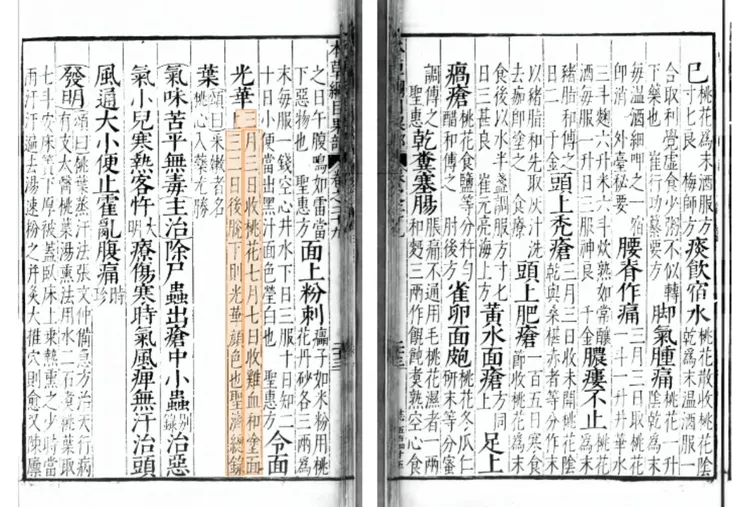 巳桃花為末酒服方寸匕良 梅師方痰飲宿水桃花散收桃花陰乾為末溫酒服一
合取利覺虛食少粥不似轉下藥也 崔行功纂要方脚氣腫痛桃花一升陰乾為末
每溫酒細呷之一宿即消 外臺秘要腰脊作痛三月三日取桃花一斗一升井華水
三斗麴六升米六斗炊熟如常釀酒每服一升日三服神良 千金膿瘻不止桃花為末
豬脂和傅之日二 千金頭上禿瘡三月三日收未開桃花陰乾與桑椹赤者等分作末
以豬脂和先取灰汁洗去痂即塗之 食療頭上肥瘡一百五日寒食節收桃花為末
食後以水半盞調服方寸匕日三甚良 崔元亮海上方黃水面瘡方同上足上
瘑瘡桃花食鹽等分杵勻醋和傅之 肘後方雀卵面皰桃花冬瓜仁研末等分蜜
調傅之聖惠方乾糞塞腸脹痛不通用毛桃花濕者一兩和麪三兩作餛飩煮熟空心食
之日午腹鳴如雷當下惡物也 聖惠方面上粉刺㿺子如米粉用桃花丹砂各三兩為
末每服一錢空心井水下日三服十日知二十日小便當出黑汁面色瑩白也 聖惠方令面
光華三月三日收桃花七月七日收雞血和塗面上三二日後脫下則光華顏色也聖濟總錄
葉頌曰采嫩者名桃心入藥尤勝
氣味苦平無毒主治除尸蟲出瘡中小蟲別錄治惡
氣小兒寒熱客忤大明療傷寒時氣風痺無汗治頭
風通大小便止霍亂腹痛時珍
發明頌曰桃葉蒸汗法張文仲備急方治天行病有支太醫桃葉湯熏法用水二石煮桃葉取
七斗安床簀下厚被蓋臥床上乘熱熏之少時當雨汗汗遍去湯速粉之并灸大椎穴則愈又陳廩
本草綱目果部